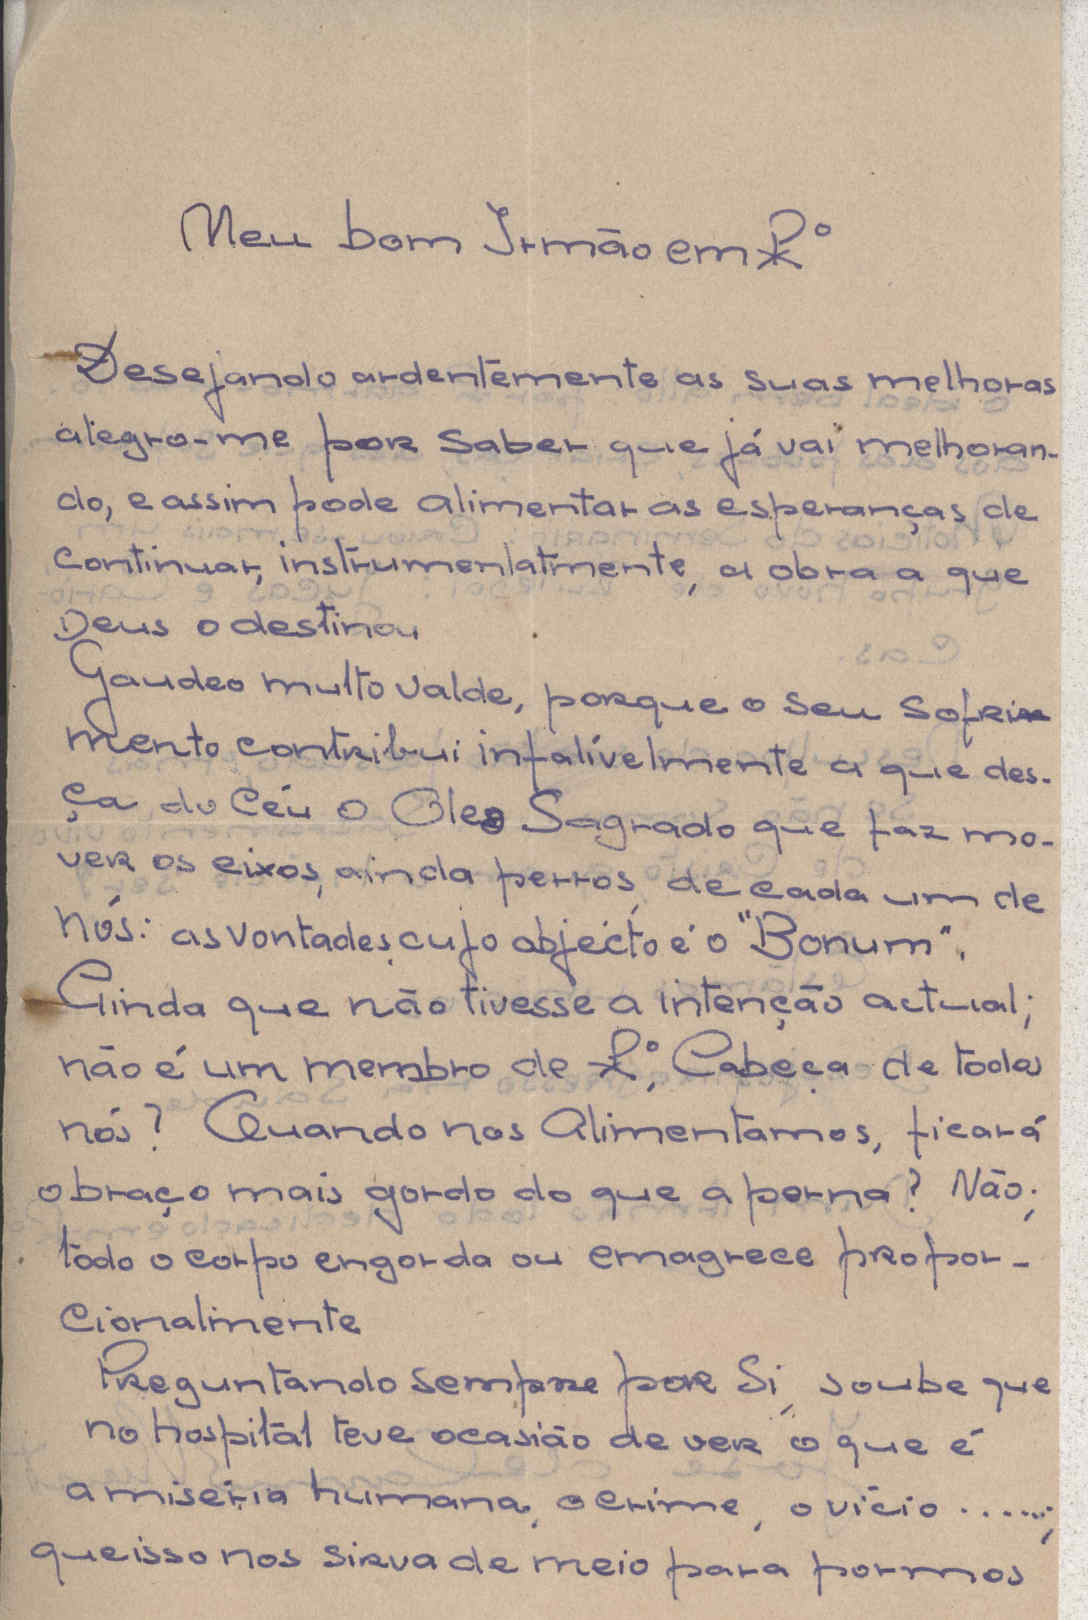 Meu bom Irmão em X.º
Desejando ardentemente as suas melhoras
alegro-me por saber que já vai melhoran-
do, e assim pode alimentar as esperanças de
continuar, instrumentalmente, a obra a que
Deus o destinou
Gaudeo multo valde, porque o seu sofri
mento contribui infalívelmente a que des-
ça do Céu o Oleo Sagrado que faz mo-
ver os eixos, ainda perros, de cada um de
nós: as vontades, cujo objecto é o "Bonum".
Ainda que não tivesse a intenção actual;
não é um membro de X.º, Cabeça de todos
nós? Quando nos Alimentamos, ficará
o braço mais gordo do que a perna? Não;
todo o corpo engorda ou emagrece propor-
cionalmente
Preguntando sempre por Si, soube que
no hospital teve ocasião de ver o que é
a miséria humana, o crime, o vício ......;
que isso nos sirva de meio para pormos